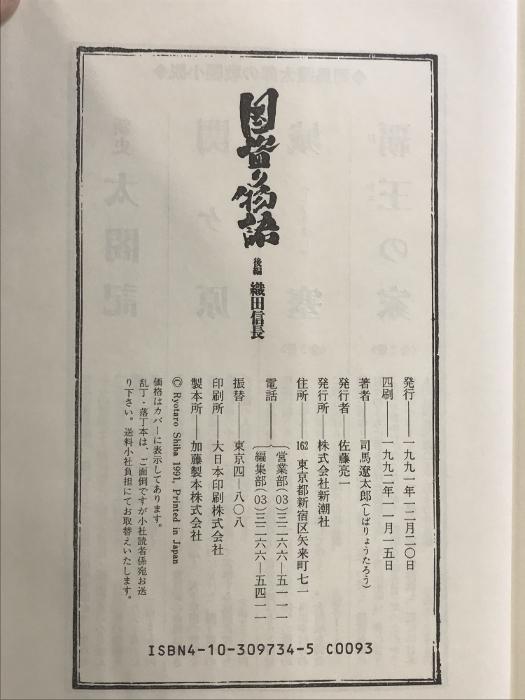 国盗り物語
後編 織田信長
発行―一九九一年一二月二〇日
四刷―一九九二年一一月一五日
著者―司馬遼太郎(しばりょうたろう)
発行者―佐藤亮一
発行所―株式会社新潮社
住所―162 東京都新宿区矢来町七一
電話―
営業部(03)三二六六―五一一一
編集部(03)三二六六―五四一一
振替―東京四―八〇八
印刷所―大日本印刷株式会社
製本所―加藤製本株式会社
© Ryotaro Shiba 1991, Printed in Japan
価格はカバーに表示してあります。
乱丁・落丁本は、ご面倒ですが小社読者係宛お送
り下さい。送料小社負担にてお取替えいたします。
ISBN4-10-309734-5 C0093
覇王の家
城塞
関ヶ原
新史 太閤記